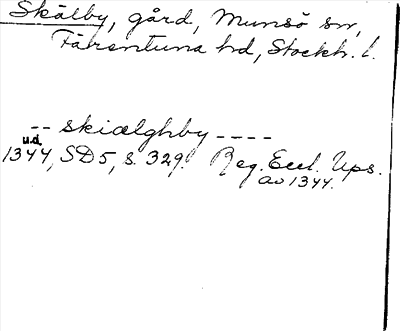 Skälby, gård, Munsö sn,
Färentuna hd, Stockh. l.
-- skiælghby ----
u.d.
1344, SD5, s. 329. Reg. Eccl. Ups.
av 1344.